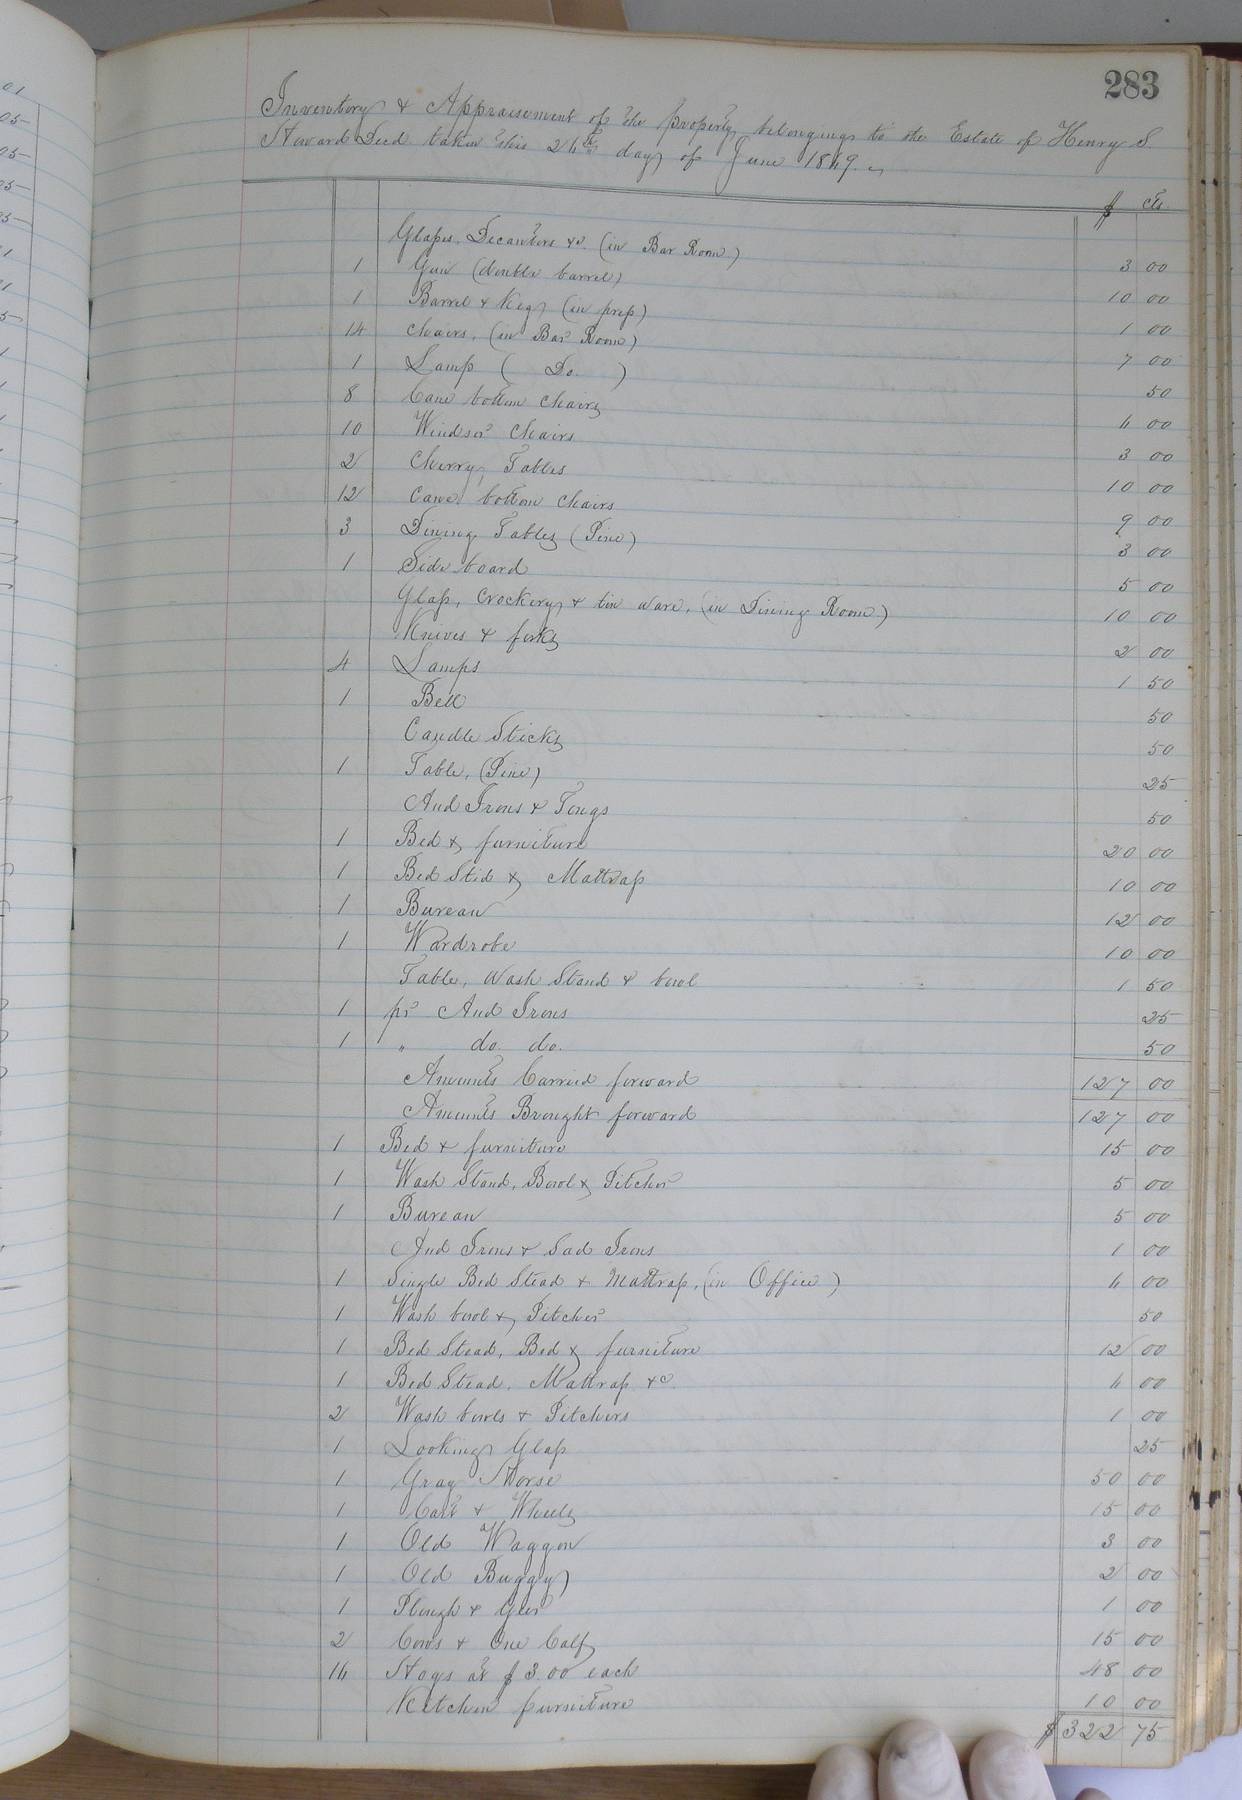 283
Inventory & Appraisement of the property belonging to the Estate of Henry S.
Howard Decd taken this 24th day of June 1849.
$ cts
Glasses, Decanters &c. (in Bar Room) 3 00
1 Gun (double barrel) 10 00
1 Barrel & Keg (in press) 1 00
14 chairs, (in Bar Room) 7 00
1 Lamp ( Do. ) 50
8 Cane bottom chairs 4 00
10 Windsor chairs 3 00
2 Cherry Tables 10 00
12 Cane bottom chairs 9 00
3 Dining Tables (Pine) 3 00
1 Side board 5 00
Glass, Crockery & tin ware, (in Dining Room) 10 00
Knives & forks 2 00
4 Lamps 1 50
1 Bell 50
Candle Sticks 50
1 Table, (Pine) 25
And Irons & Tongs 50
1 Bed & furniture 20 00
1 Bed Stid & Mattrass 10 00
1 Bureau 12 00
1 Wardrobe 10 00
Table, Wash Stand & bowl 1 50
1 pr And Irons 25
1 " do. do. 50
Amounts Carried forward 127 00
Amounts Brought forward 127 00
1 Bed & furniture 15 00
1 Wash Stand, Bowl & Pitcher 5 00
1 Bureau 5 00
And Irons & Sad Irons 1 00
1 Single Bed Stead & Mattrass, (in Office) 4 00
1 Wash bowl & Pitcher 50
1 Bed Stead, Bed & furniture 12 00
1 Bed Stead, Mattrass &c. 4 00
2 Wash bowls & Pitchers 1 00
1 Looking Glass 25
1 Gray Horse 50 00
1 Cart & Wheels 15 00
1 Old Waggon 3 00
1 Old Buggy 2 00
1 Plough & Geer 1 00
2 Cows & One Calf 15 00
16 Hogs at $3.00 each 48 00
Kitchen furniture 10 00
$322 75